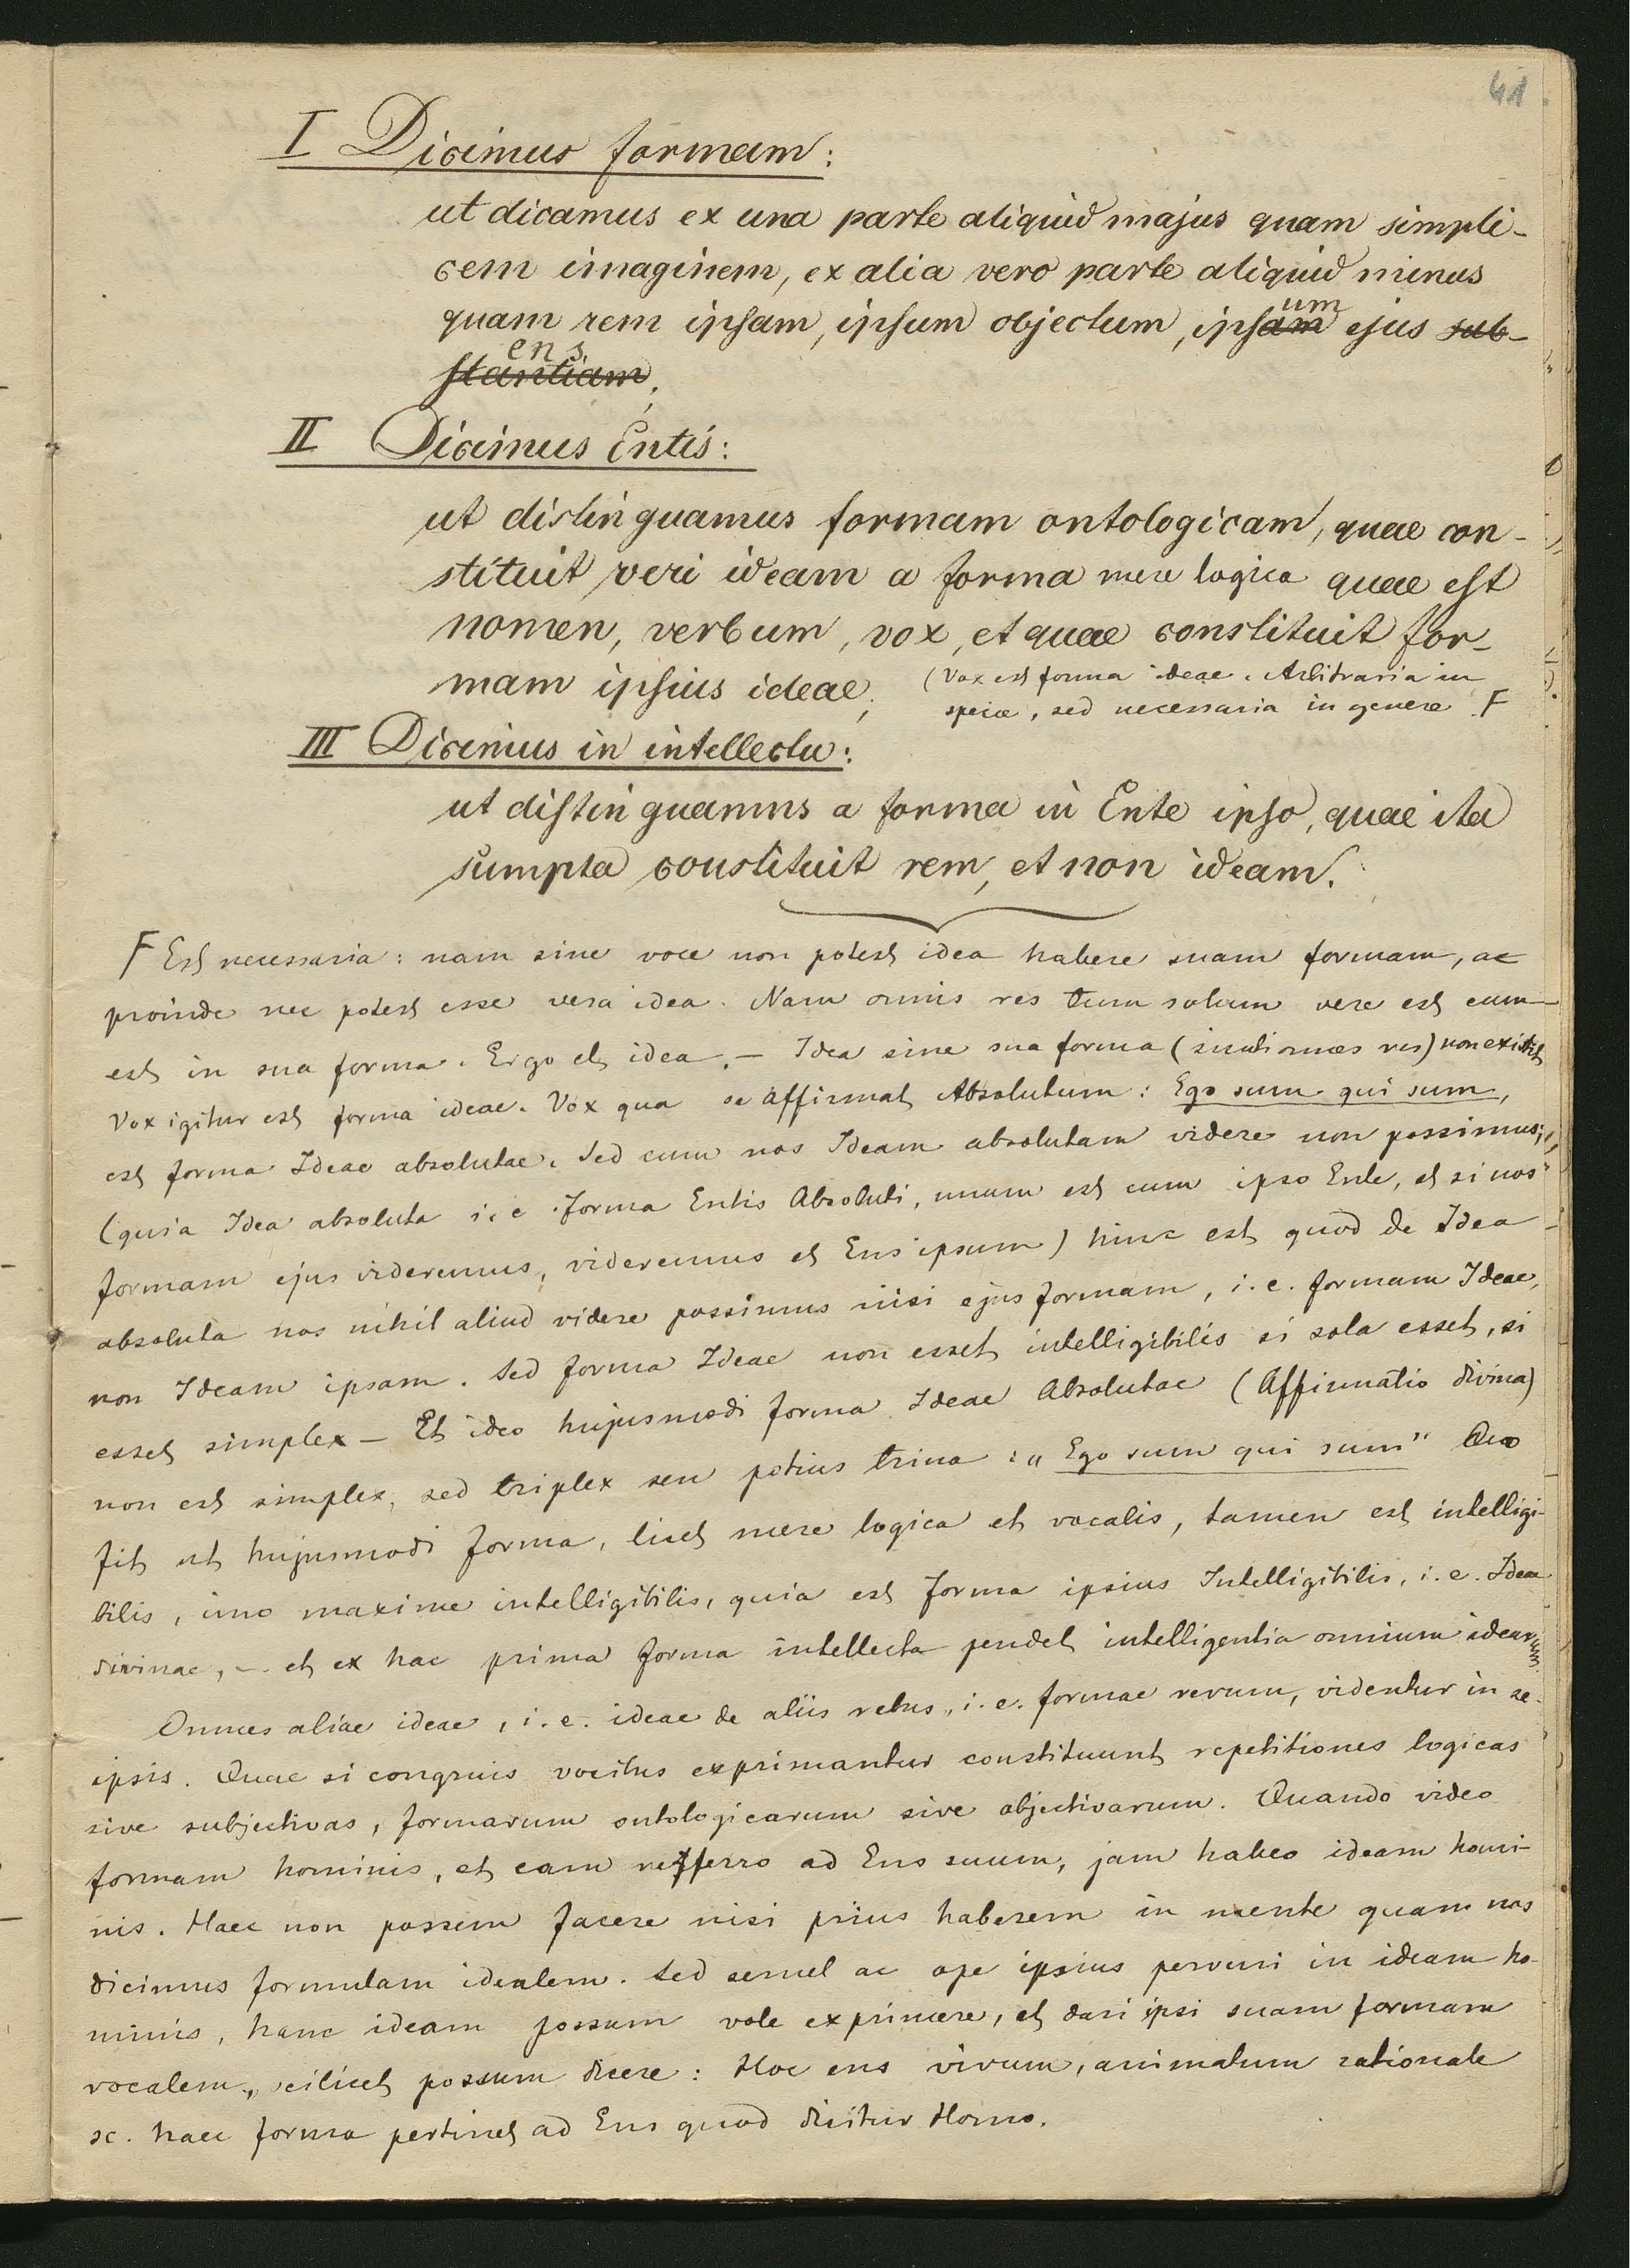 41.
I Dicimus formam:
ut dicamus ex una parte aliquid majus quam simpli-
cem imaginem, ex alia vero parte aliquid minus
quam rem ipsam, ipsum objectum, ipsam um ejus sub-
stantiam ens;
II Dicimus Entis:
ut distinguamus formam ontologicam, quae con-
stituit veri ideam a forma mere logica quae est
nomen, verbum, vox, et quae constituit for-
mam ipsius ideae; (Vox est forma ideae. Arbitraria in
specie, sed necessaria in genere F
III Dicimus in intellectu:
ut distinguamus a forma in Ente ipso, quae ita
sumpta constituit rem, et non ideam.
F Est necessaria: nam sine voce non potest idea habere suam formam, ac
proinde nec potest esse vera idea. Nam omnis res tum solum vere est cum
est in sua forma. Ergo et idea. – Idea sine sua forma (sicuti omnes res) non existit
Vox igitur est forma ideae. Vox qua se affirmat Absolutum: Ego sum qui sum,
est forma Ideae absolutae. Sed cum nos Ideam absolutam videre non possimus;
(quia Idea absoluta i. e. forma Entis Absoluti, unum est cum ipso Ente, et si nos
formam ejus videremus, videremus et Ens ipsum) hinc est quod de Idea
absoluta nos nihil aliud videre possimus nisi ejus formam, i. e. formam Ideae,
non Ideam ipsam. Sed forma Ideae non esset intelligibilis si sola esset, si
esset simplex – Et ideo hujusmodi forma Ideae Absolutae (Affirmatio divina)
non est simplex, sed triplex seu potius trina: „Ego sum qui sum" Quo
fit ut hujusmodi forma, licet mere logica et vocalis, tamen est intelligi-
bilis, imo maxime intelligibilis, quia est forma ipsius Intelligibilis, i. e. Ideae
divinae, – et ex hac prima forma intellecta pendet intelligentia omnium idearum.
Omnes aliae ideae, i. e. ideae de aliis rebus, i. e. formae rerum, videntur in se
ipsis. Quae si congruis vocibus exprimantur constituunt repetitiones logicas
sive subjectivas, formarum ontologicarum sive objectivarum. Quando video
formam hominis, et eam refferro ad Ens suum, jam habeo ideam homi-
nis. Haec non possem facere nisi prius haberem in mente quam nos
dicimus formulam idealem. Sed semel ac ope ipsius perveni in ideam ho-
minis, hanc ideam possum exprimere, et dari ipsi suam formam
vocalem, scilicet possum dicere: Hoc ens vivum, animatum rationale
sc. haec forma pertinet ad Ens quod dicitur Homo.